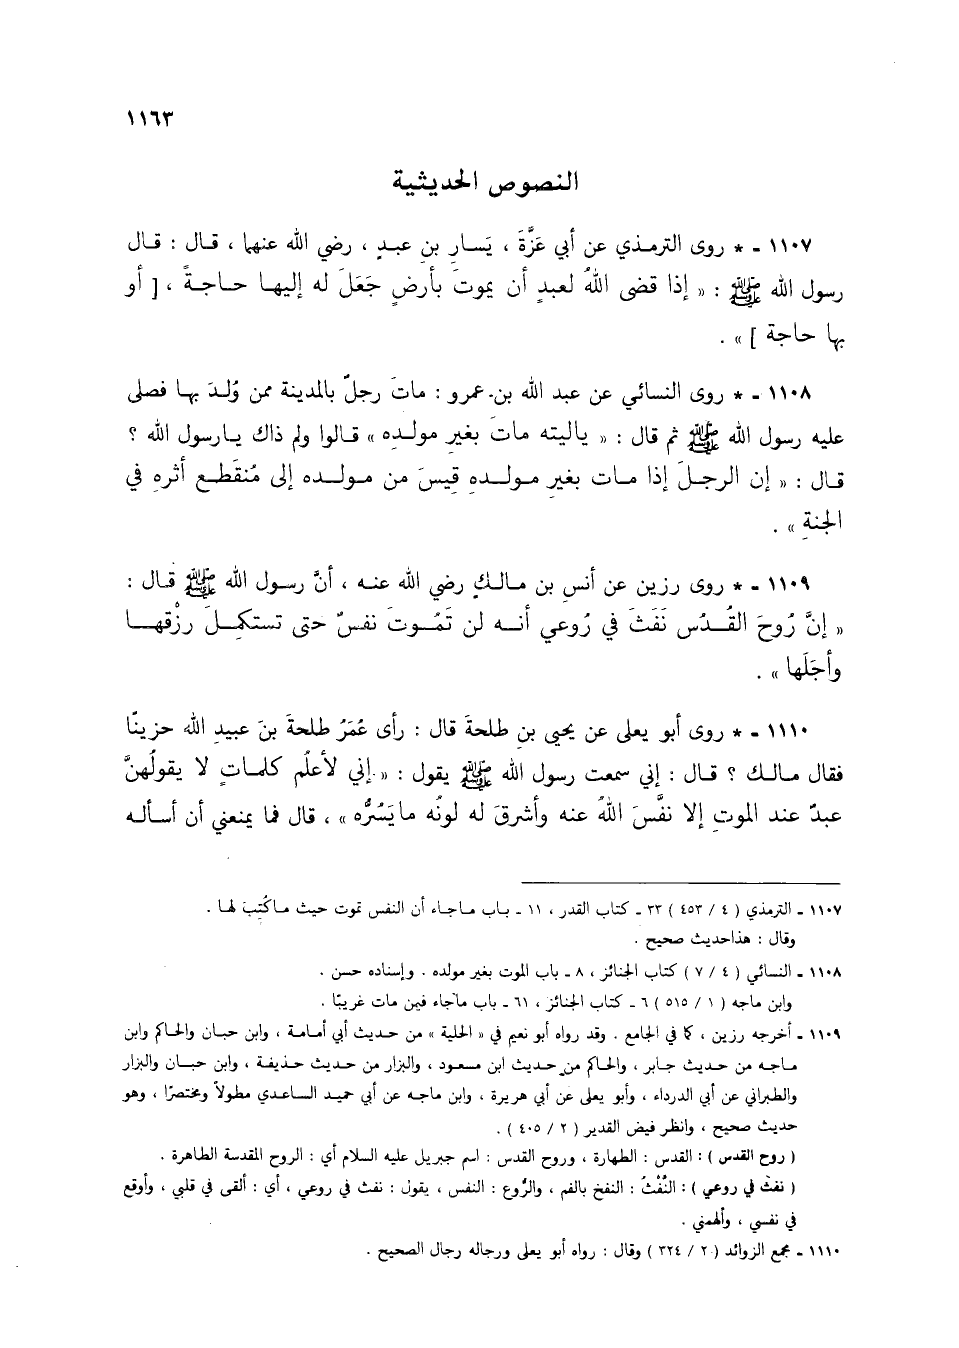 ١١٦٣
النصوص الحديثية
١١٠٧ - * روى الترمذي عن أبي عَزَّةَ ، يَسارِ بنِ عبدٍ ، رضي الله عنهما ، قال : قال
رسول الله ﷺ : « إذا قضى اللهُ لعبدٍ أن يموتَ بأرضٍ جَعَلَ له إليها حاجةً ، [ أو
بها حاجة ] » .
١١٠٨ - * روى النسائي عن عبد الله بن عمرو : ماتَ رجلٌ بالمدينة ممن وُلدَ بها فصلى
عليه رسول الله ﷺ ثم قال : « ياليته ماتَ بغيرِ مولدِه » قالوا ولم ذاك يارسول الله ؟
قال : « إن الرجلَ إذا مات بغيرِ مولدهِ قِيسَ من مولده إلى مُنقَطعِ أثرهِ في
الجنةِ » .
١١٠٩ - * روى رزين عن أنسِ بن مالكٍ رضي الله عنه ، أنَّ رسول الله ﷺ قال :
« إنَّ رُوحَ القُدُسِ نَفَثَ في رُوعي أنه لن تَمُوتَ نفسٌ حتى تستكملَ رزْقَها
وأجَلَها » .
١١١٠ - * روى أبو يعلى عن يحيى بنِ طلحةَ قال : رأى عُمَرُ طلحةَ بنَ عبيدِ الله حزينًا
فقال مالك ؟ قال : إني سمعت رسول الله ﷺ يقول : « إني لأعلَم كلماتٍ لا يقولُهنَّ
عبدٌ عند الموتِ إلا نفَّسَ اللهُ عنه وأشرقَ له لونُه مايَسُرُّه » ، قال فما يمنعني أن أسأله
١١٠٧ - الترمذي ( ٤ / ٤٥٣ ) ٣٣ - كتاب القدر ، ١١ - باب ماجاء أن النفس تموت حيث ماكُتِبَ لها .
وقال : هذاحديث صحيح .
١١٠٨ - النسائي ( ٤ / ٧ ) كتاب الجنائز ، ٨ - باب الموت بغير مولده . وإسناده حسن .
وابن ماجه ( ١ / ٥١٥ ) ٦ - كتاب الجنائز ، ٦١ - باب ماجاء فيمن مات غريبًا .
١١٠٩ - أخرجه رزين ، كما في الجامع . وقد رواه أبو نعيم في « الحلية » من حديث أبي أمامة ، وابن حبان والحاكم وابن
ماجه من حديث جابر ، والحاكم من حديث ابن مسعود ، والبزار من حديث حذيفة ، وابن حبان والبزار
والطبراني عن أبي الدرداء ، وأبو يعلى عن أبي هريرة ، وابن ماجه عن أبي حميد الساعدي مطولاً ومختصرًا ، وهو
حديث صحيح ، وانظر فيض القدير ( ٢ / ٤٠٥ ) .
( روح القدس ) : القدس : الطهارة ، وروح القدس : اسم جبريل عليه السلام أي : الروح المقدسة الطاهرة .
( نفث في روعي ) : النَّفْثُ : النفخ بالفم ، والرُّوع : النفس ، يقول : نفث في روعي ، أي : ألقى في قلبي ، وأوقع
في نفسي ، وألهمني .
١١١٠ - مجمع الزوائد ( ٢ / ٣٢٤ ) وقال : رواه أبو يعلى ورجاله رجال الصحيح .